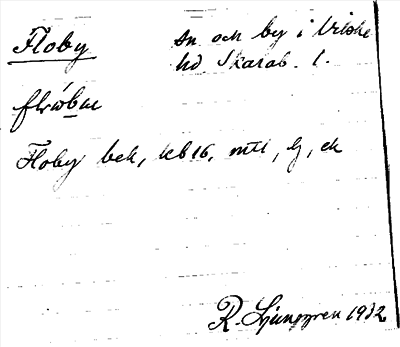 Floby
sn och by i Vilske
hd Skarab. l.
Floby bek, kb16, mtl, lj, ek
R. Ljunggren 1932